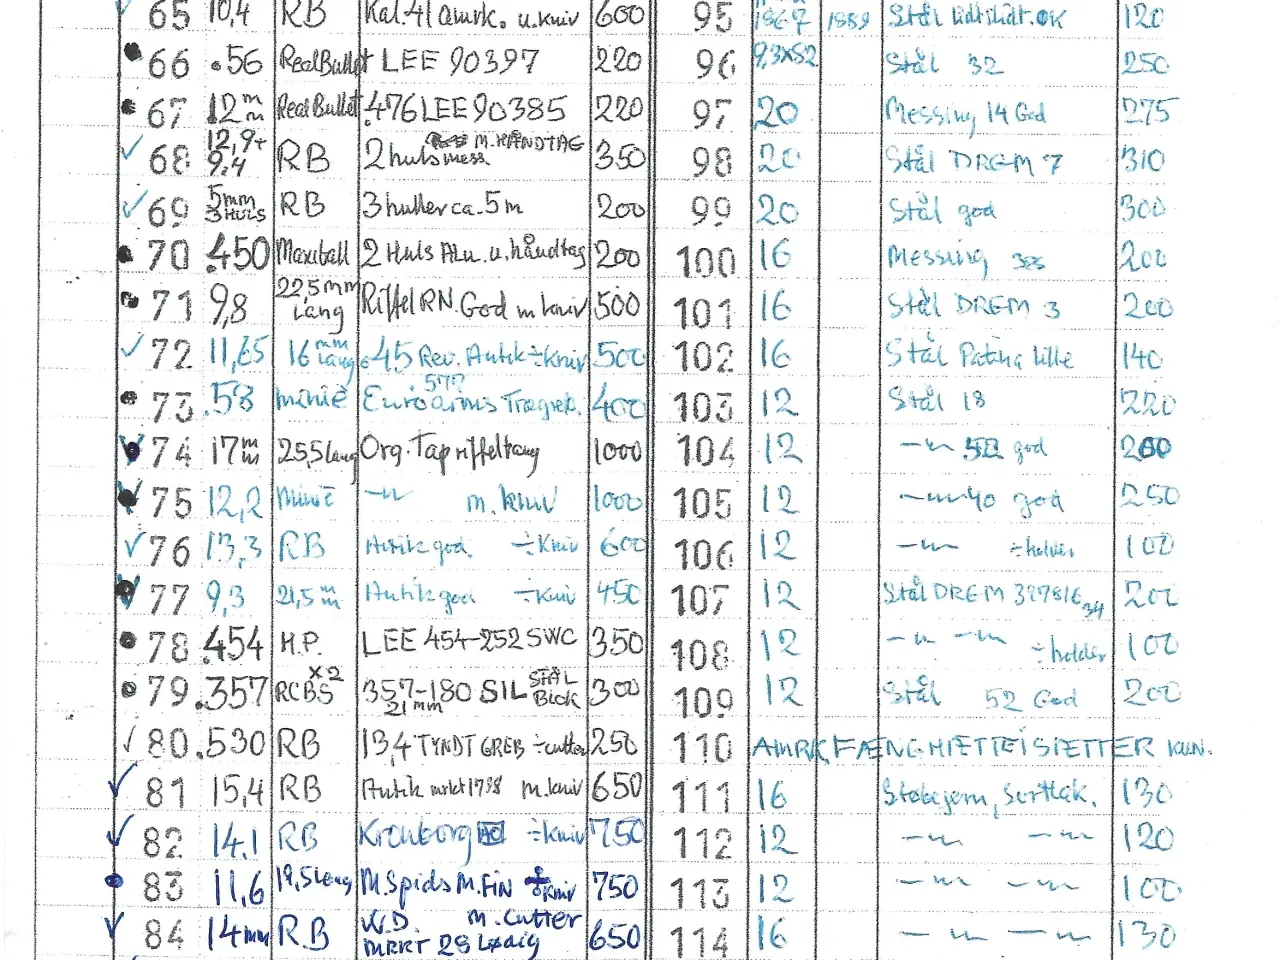 65 10,4 RB Kal. 41 Qmrk. u. kniv 600 95 1867 1889 Stål lidt slidt. OK 120
66 .56 RealBullet LEE 90397 220 96 9,3x82 Stål 32 250
67 12mm RealBullet .476 LEE 90385 220 97 20 Messing 14 God 275
68 12,9+ 9,4 RB 2 huls mess. M. HÅNDTAG 350 98 20 Stål DREM 7 310
69 5mm 3 HULS RB 3 huller ca. 5m 200 99 20 Stål god 300
70 .450 Maxiball 2 Huls Alu. u. håndtag 200 100 16 Messing 200
71 9,8 22,5mm Lang Riffel RN. God m kniv 500 101 16 Stål DREM 3 200
72 11,65 16mm lang .45 Rev. Antik ÷kniv 500 102 16 Stål Patina lille 140
73 .58 minié Euroarms .577 Trægreb. 400 103 12 Stål 18 220
74 17mm 25,5 lang Org. Tapriffeltang 1000 104 12 -"- god 200
75 12,2 Minié -"- m. kniv 1000 105 12 -"- 40 god 250
76 13,3 RB Antik god. ÷kniv 600 106 12 -"- ÷holder 100
77 9,3 21,5mm Antik god ÷kniv 450 107 12 Stål DREM 327816 34 200
78 .454 H.P. LEE 454-252 SWC 350 108 12 -"- -"- ÷holder 100
79 .357 RCBS X2 357-180 SIL 21mm STÅL BLOK 300 109 12 Stål 52 God 200
80 .530 RB 13,4 TYNDT GREB ÷cutter 250 110 AMRK FÆNGHÆTTEISÆTTER KUN.
81 15,4 RB Antik mrkt 1798 m. kniv 650 111 16 Støbejern, Sortlak. 130
82 14,1 RB Kronborg ÷kniv 750 112 12 -"- -"- 120
83 11,6 19,5 lang M. Spids M. FIN kniv 750 113 12 -"- -"- 100
84 14mm R.B W.D. m. Cutter MRKT 28 Lødig 650 114 16 -"- -"- 130